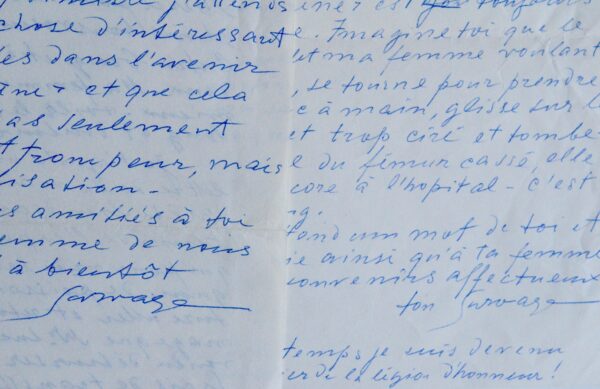 j'attends
chose d'intéressant
dans l'avenir
et que cela
as seulement
trompeur, mais
isation -
amitiés à toi
emme de nous
à bientôt
Survage
toujours
e. Imagine toi que le
et ma femme voulant
, se tourne pour prendre
c à main, glisse sur l
et trop ciré et tombe-
l du fémur cassé, elle
core à l'hopital - c'est
ng.
ond un mot de toi et
ie ainsi qu'à ta femme
ouvenirs affectueux
ton Survage
temps je suis devenu
ier de la légion d'honneur!